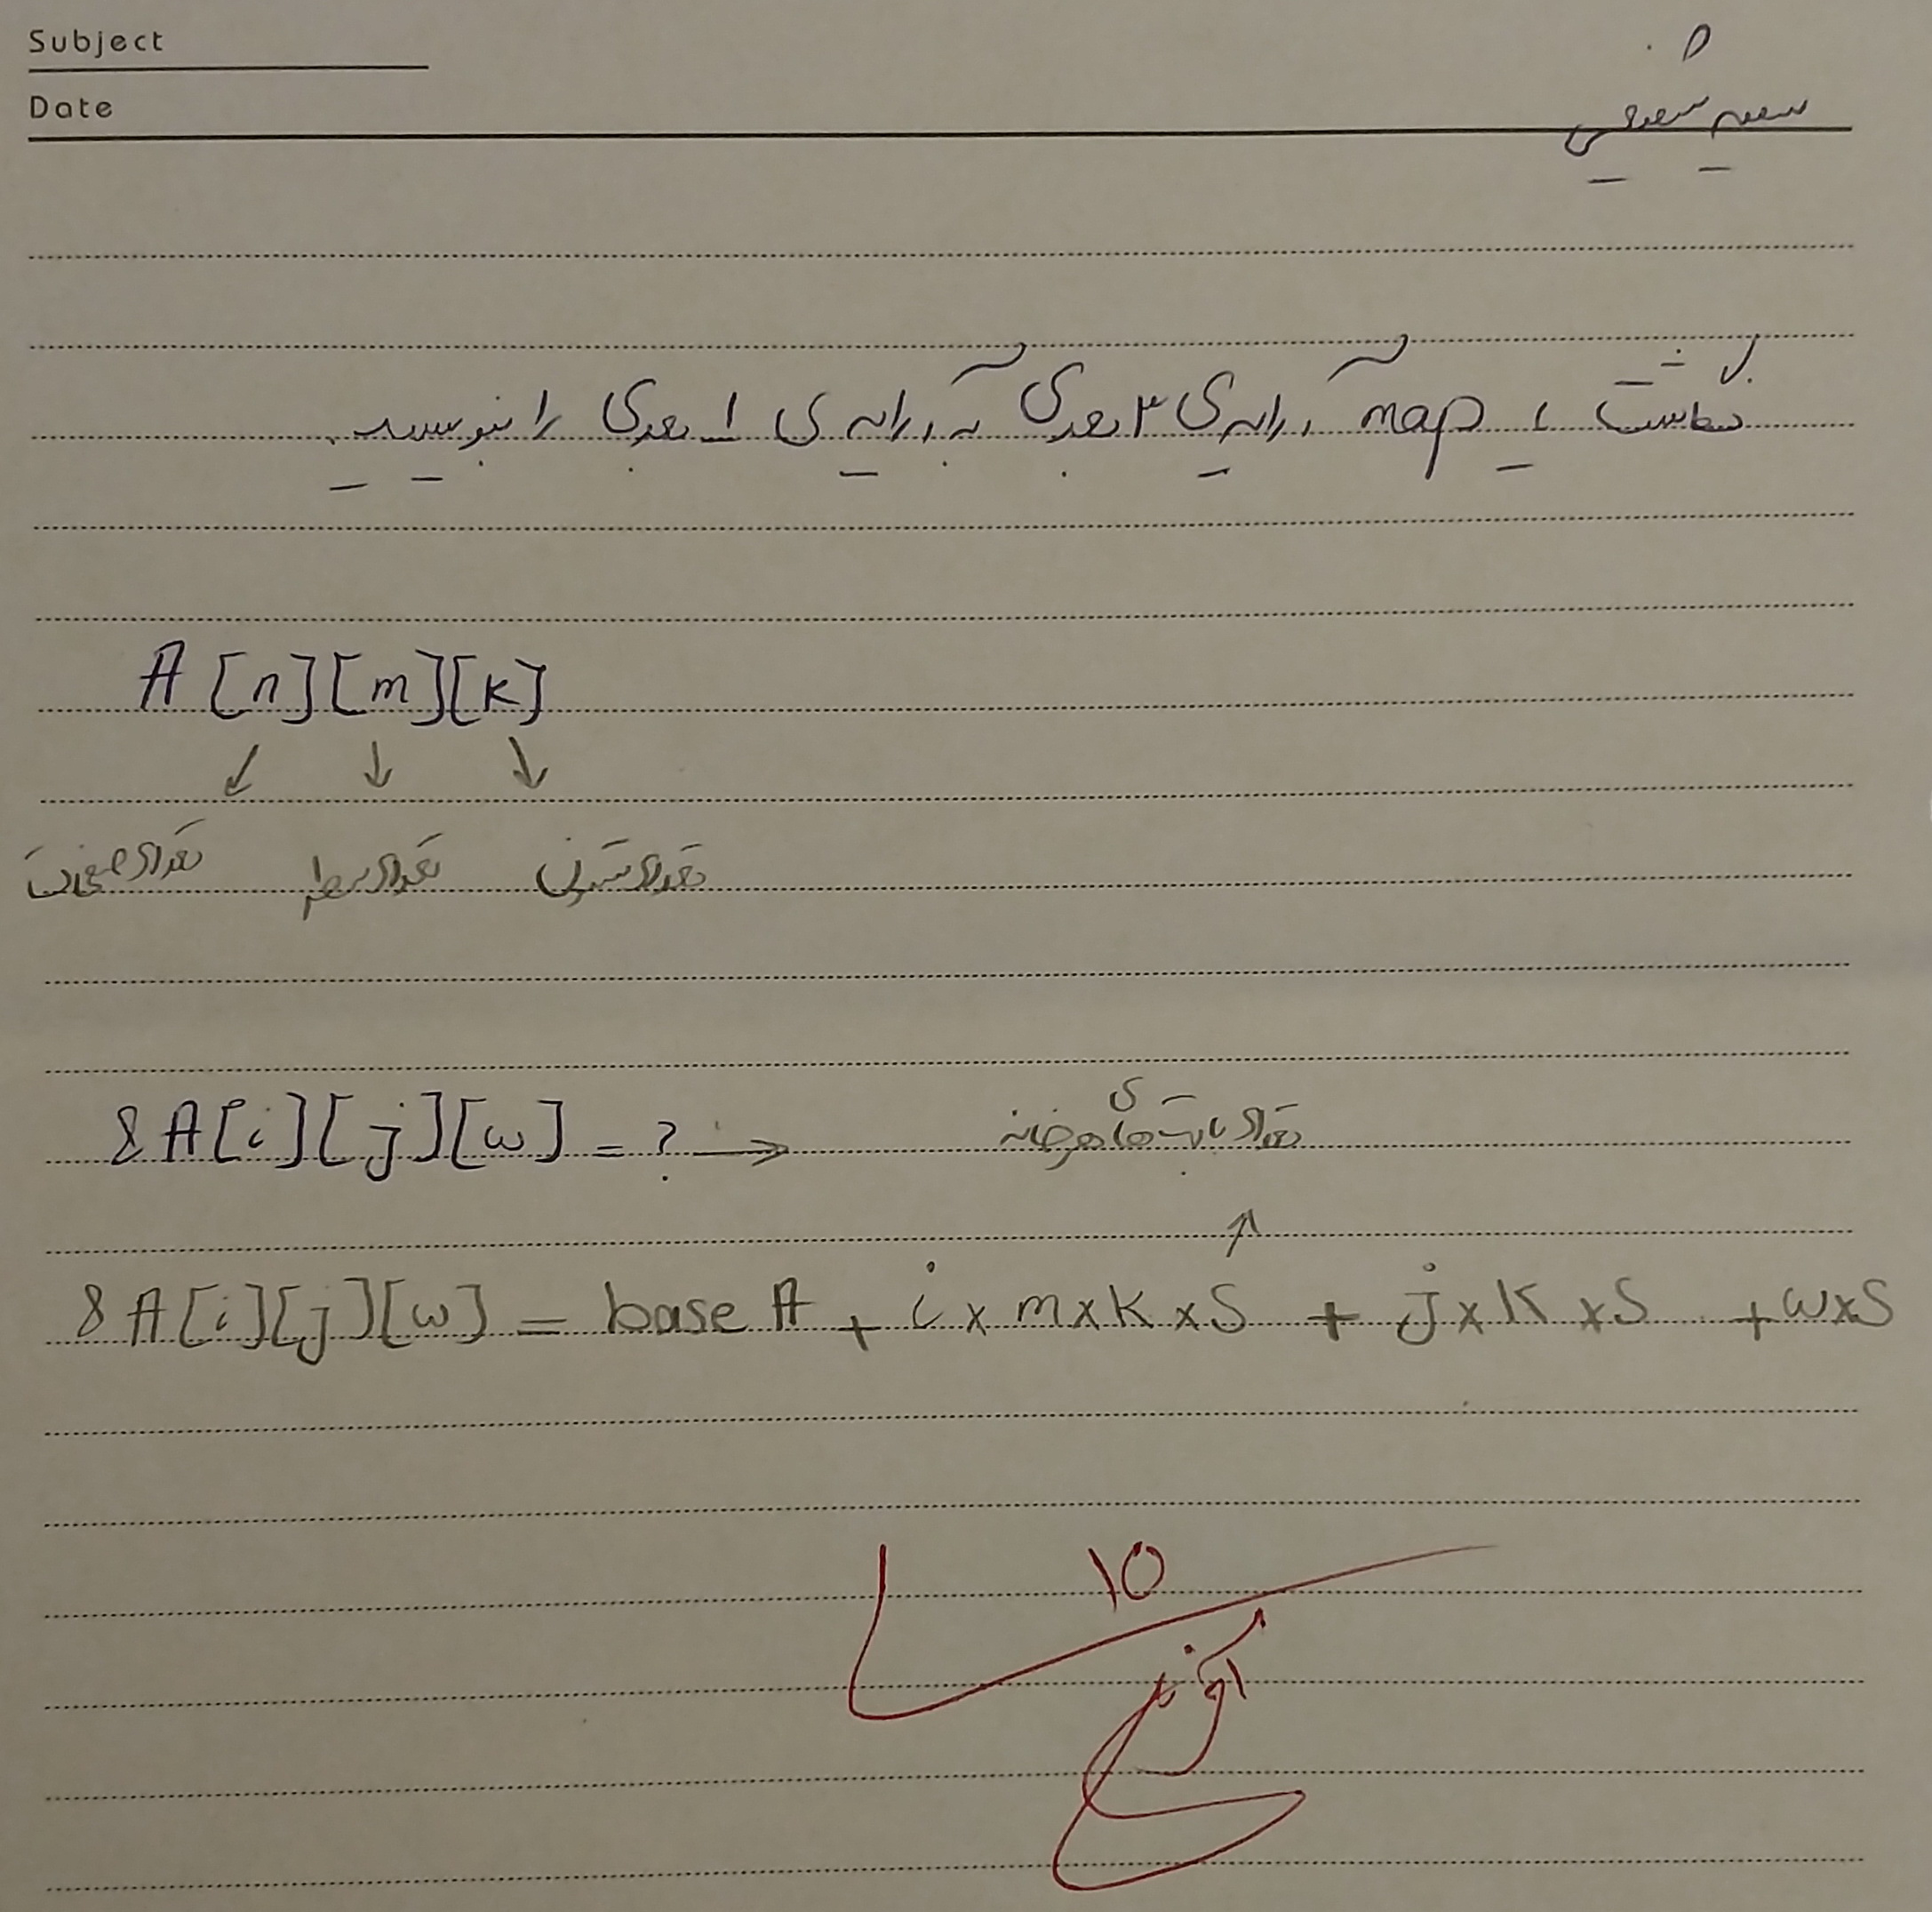 Subject
Date
نگاشت یا map آرایه‌ی ۳ بعدی به آرایه‌ی ۱ بعدی را بنویسید.
A [n][m][k]
↙ ↓ ↘
تعداد صفحات تعداد سطر تعداد ستون
& A[i][j][w] = ? → تعداد بایت‌های هر خانه
↑
& A[i][j][w] = base A + i × m × k × S + j × k × S + w × S
10
آفرین